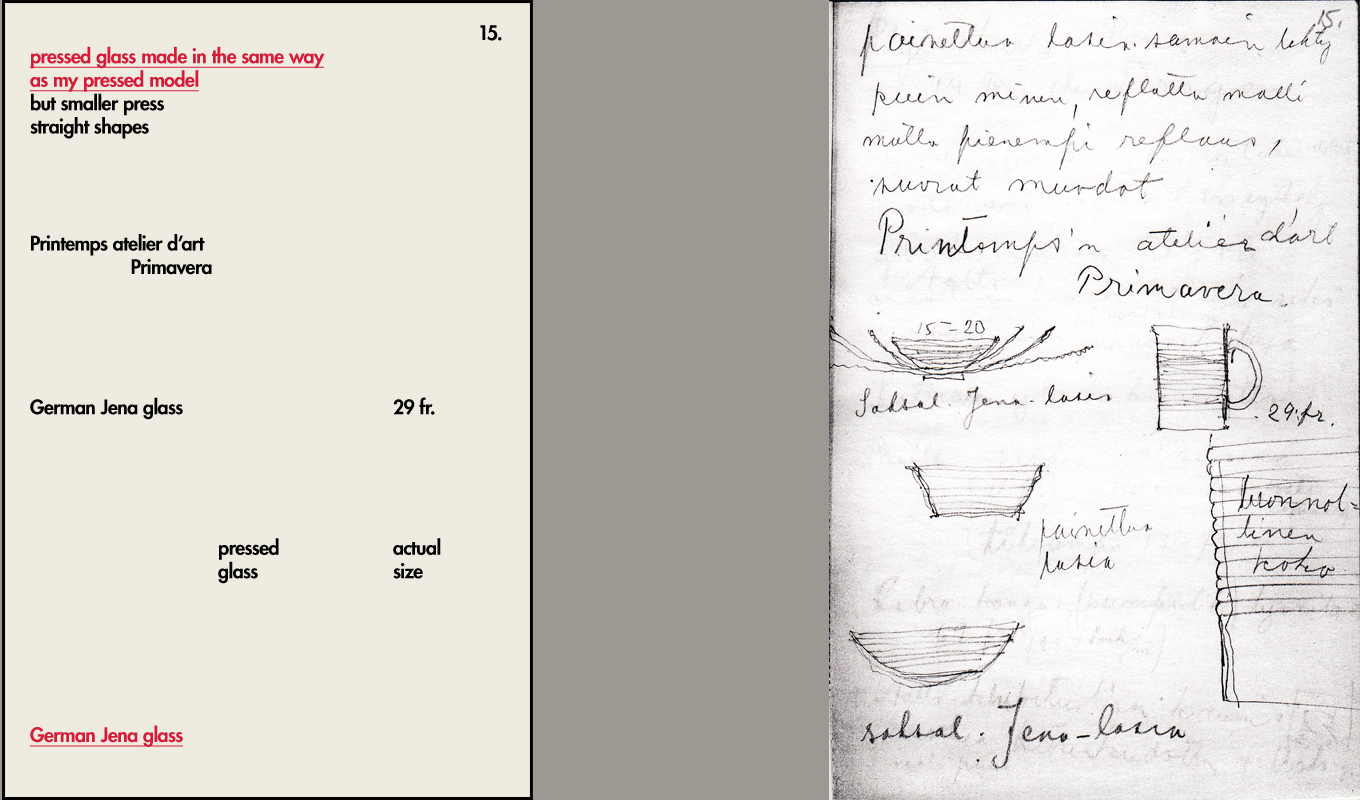 15.
pressed glass made in the same way
as my pressed model
but smaller press
straight shapes
Printemps atelier d’art
Primavera
German Jena glass 29 fr.
pressed actual
glass size
German Jena glass
15.
painettua lasia samoin tehty
kuin minun, reflattu malli
mutta pienempi reflaus,
suorat muodot
Printemps'n atelier d'art
Primavera.
15 – 20
Saksal. Jena-lasia
29 fr.
luonnol=
linen
koko
painettua
lasia
saksal. Jena-lasia